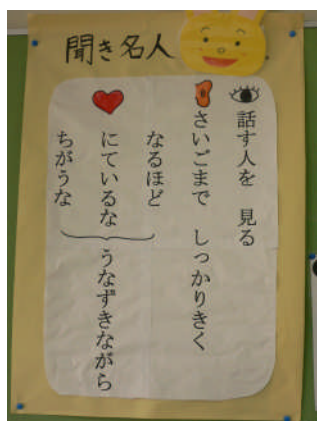 聞き名人
話す人を 見る
さいごまで しっかりきく
なるほど
にているな
ちがうな
うなずきながら